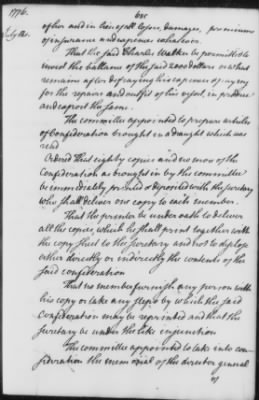 1776.
July 12.
of her and in lieu of all losses, damages, premiums
of insurance and expences whatsoever
That the said Charles Walker be permitted to
invest the ballance of the said 2000 dollars or what
remains after defraying his expences &
for the repairs and outfit of his vessel, in produce
and export the same.
The committee appointed to prepare articles
of Confederation brought in a draught which was
read
Ordered that eighty copies and no more of the
Confederation as brought in by the committee
be immediately printed & deposited with the secretary
who shall deliver one copy to each member.
That the printer be under oath to deliver
all the copies, which he shall print together with
the copy sheet to the Secretary and not to disclose
either directly or indirectly the contents of the
said confederation
That no member furnish any person with
his copy or take any steps by which the said
Confederation may be reprinted and that the
secretary be under the like injunction
The committee appointed to take into con-
sideration the memorial of the director general
of